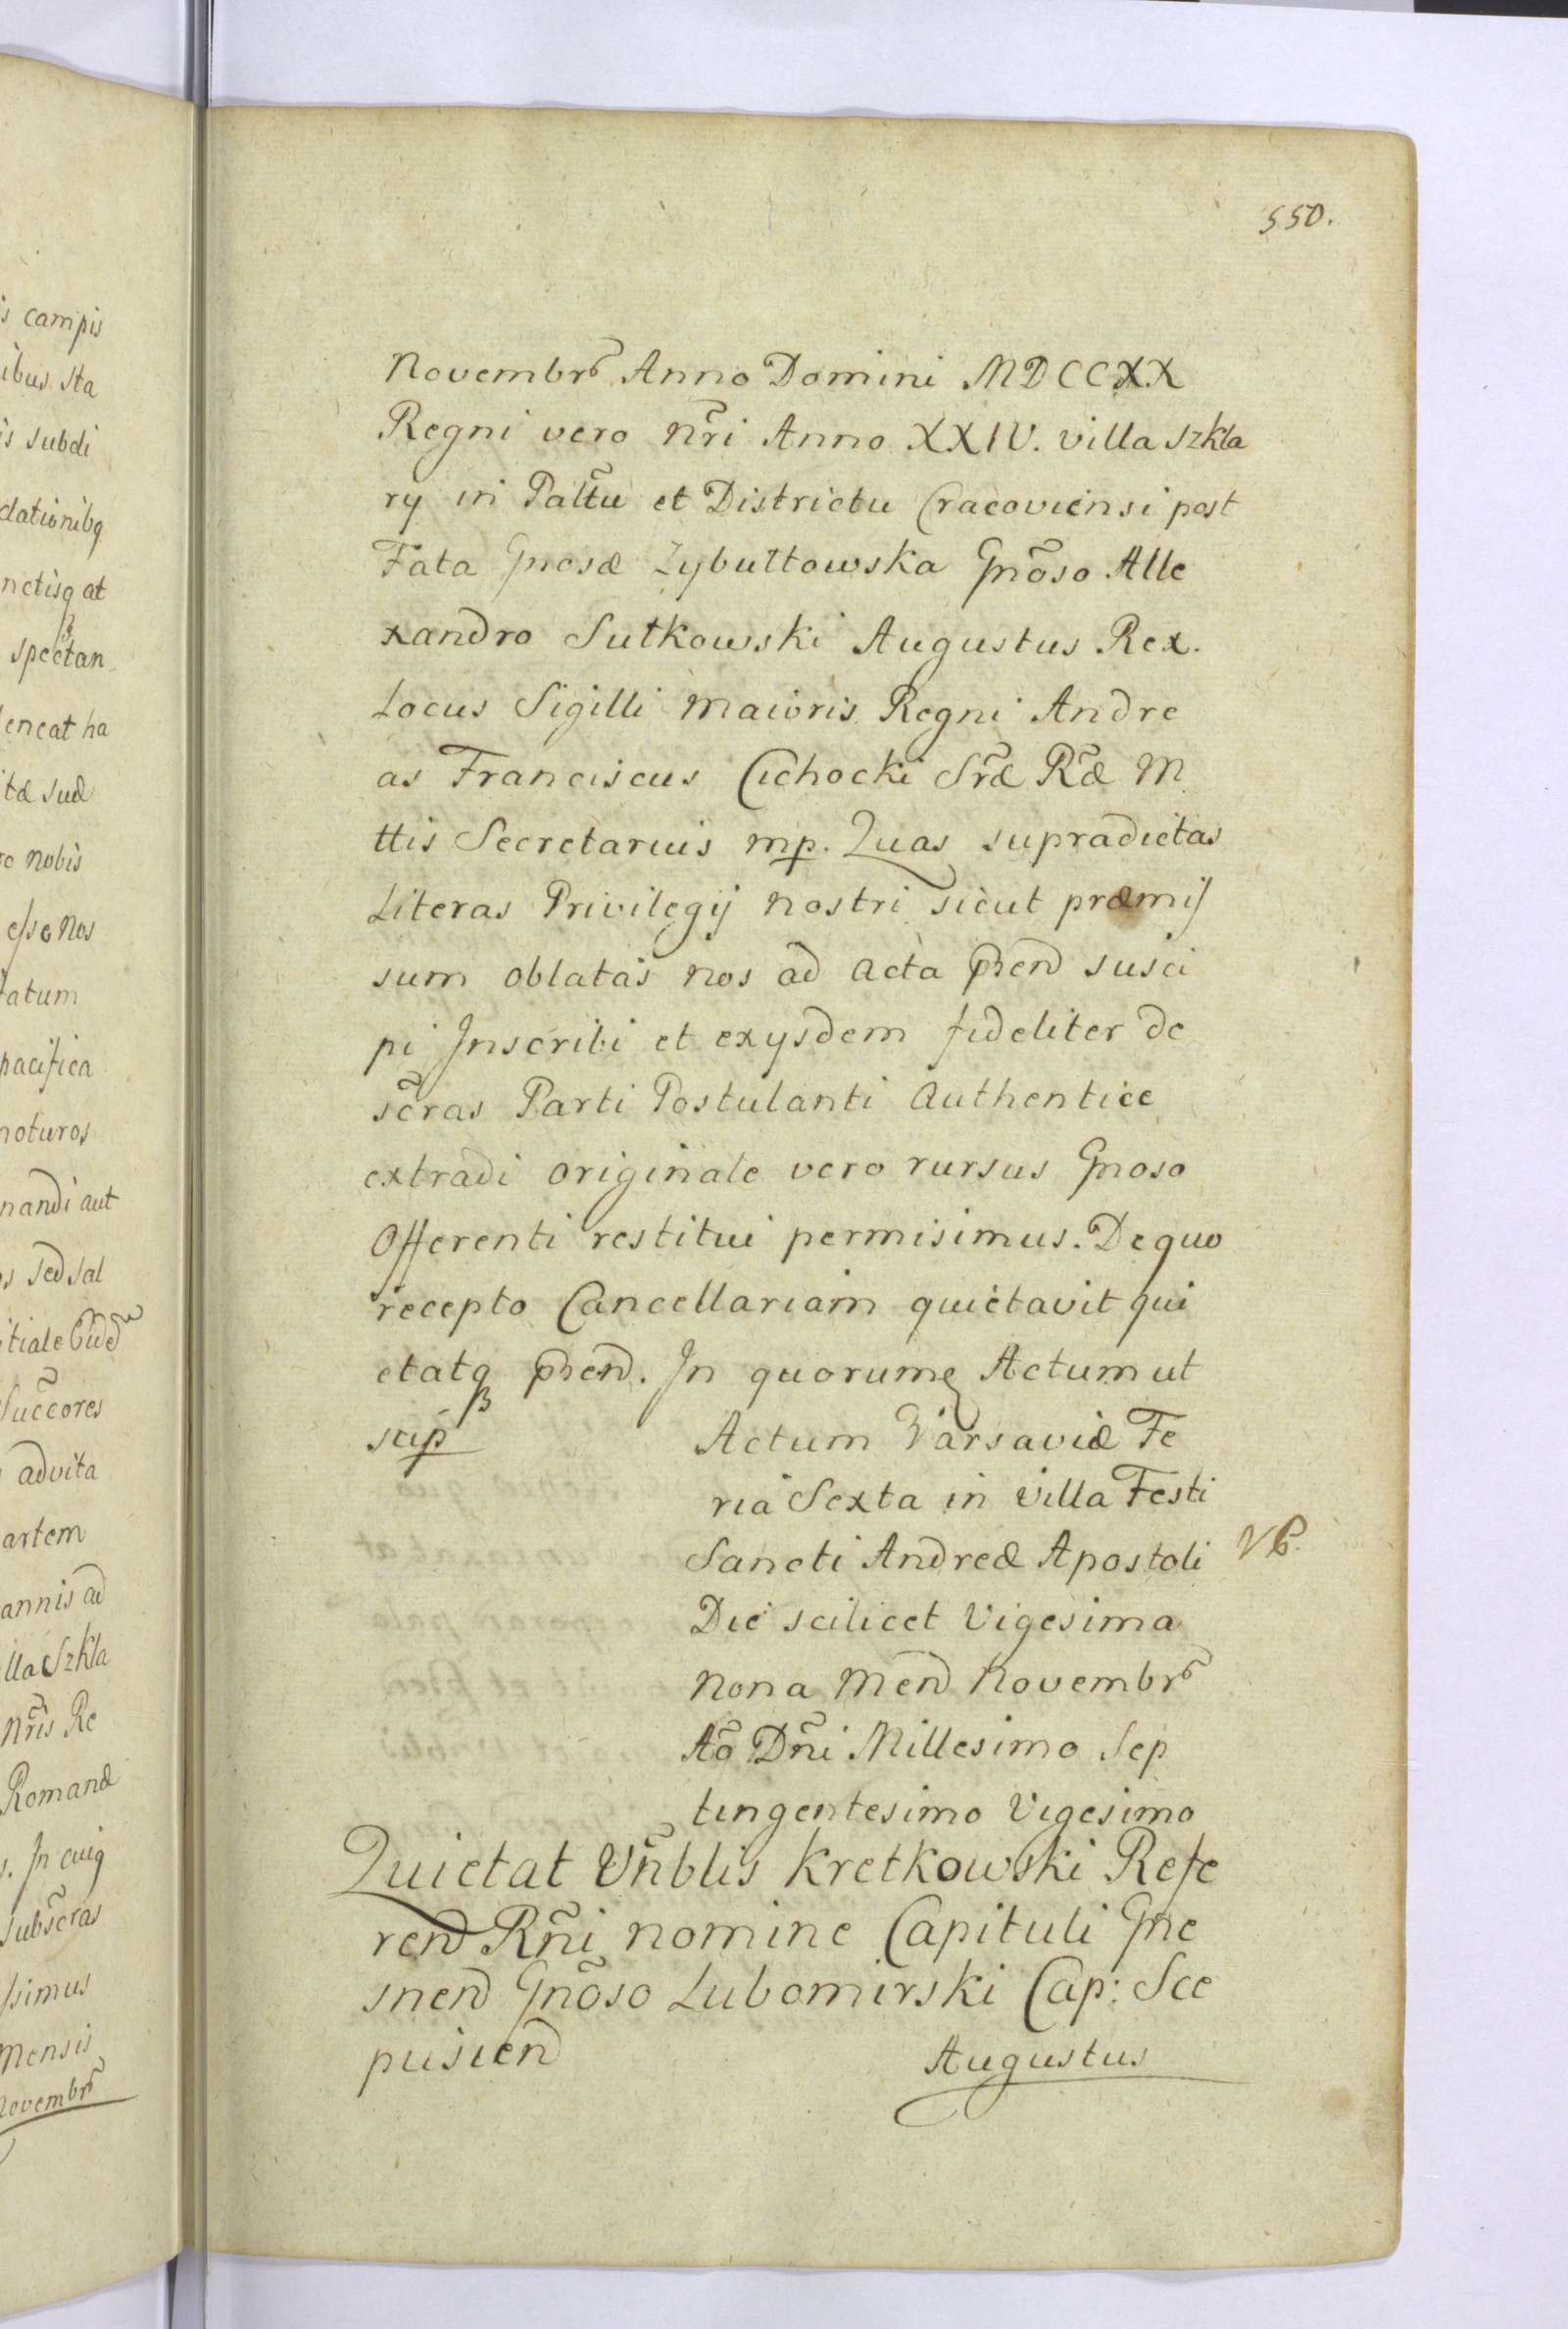 550.
Novembr̃ Anno Domini MDCCXX
Regni vero nr̃i Anno XXIV. villa Szkla
ry in Paltũ et Districtu Cracoviensi post
Fata Gnosæ Zybultowska Gnõso Alle
xandro Sutkowski Augustus Rex.
Locus Sigilli Maioris Regni Andre
as Franciscus Cichocki Sr̃æ Ræ̃ M
ttis Secretarius mp. Quas supradictas
Literas Privilegij nostri sicut præmis
sum oblatas nos ad acta phend susci
pi Inscribi et exysdem fideliter de
scr̃as Parti Postulanti Authentice
extradi originale vero rursus Gnoso
Offerenti restitui permisimus. De quo
recepto Cancellariam quietavit qui
etatq phend. In quorum Actum ut
sup
Actum Varsaviæ Fe
ria Sexta in villa Festi
Sancti Andreæ Apostoli
Die scilicet Vigesima
nona Mend Novembr̃
Aõ Dñi Millesimo Sep
tingentesimo Vigesimo
Quietat Vñblis Kretkowski Refe
rend Rñi nomine Capituli Gne
snend Gnõso Lubomirski Cap: Sce
pusiend
Augustus
s campis
ibus sta
is subdi
dationibq
nctisq at
spectan
eneat ha
tæ suæ
ro nobis
esse nos
tatum
pacifica
noturos
nandi aut
s sed sal
Succores
advita
artem
annis ad
lla Szkla
nr̃is Re
Romanæ
In cuiq
subscr̃as
ssimus
Mensis
Novembr̃